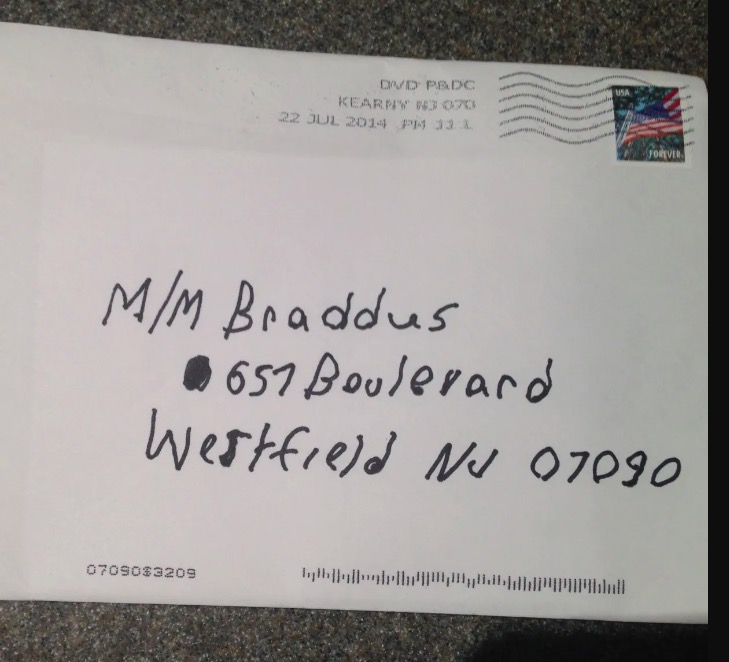 DVD P&DC
KEARNY NJ 070
22 JUL 2014 PM 11 1
USA
FOREVER
M/M Braddus
657 Boulevard
Westfield NJ 07090
07090$3209